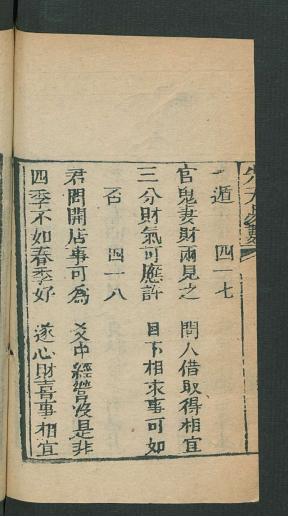 遯　四一七
官鬼妻財兩見之　問人借取得相宜
三分財氣可應許　目下相求事可如
否　四一八
君問開店事可為　爻中經營沒是非
四季不如春季好　遂心財喜事相宜